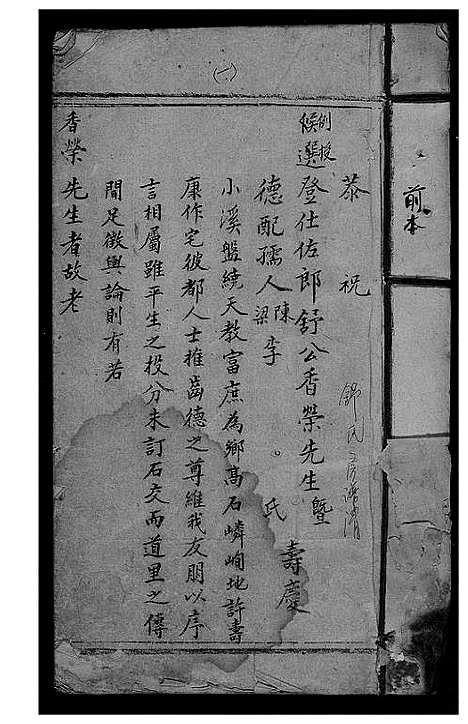 (一)
前本
恭祝
例授
候選登仕佐郎舒公香榮先生暨
德配孺人陳梁李。氏
壽慶
小溪盤繞天教富庶為鄉高石嶙峋地許壽
康作宅彼都人士推齒德之尊維我友朋以序
言相屬雖平生之投分未訂石交而道里之傳
間足徵輿論則有若
香榮先生者故老
舒氏